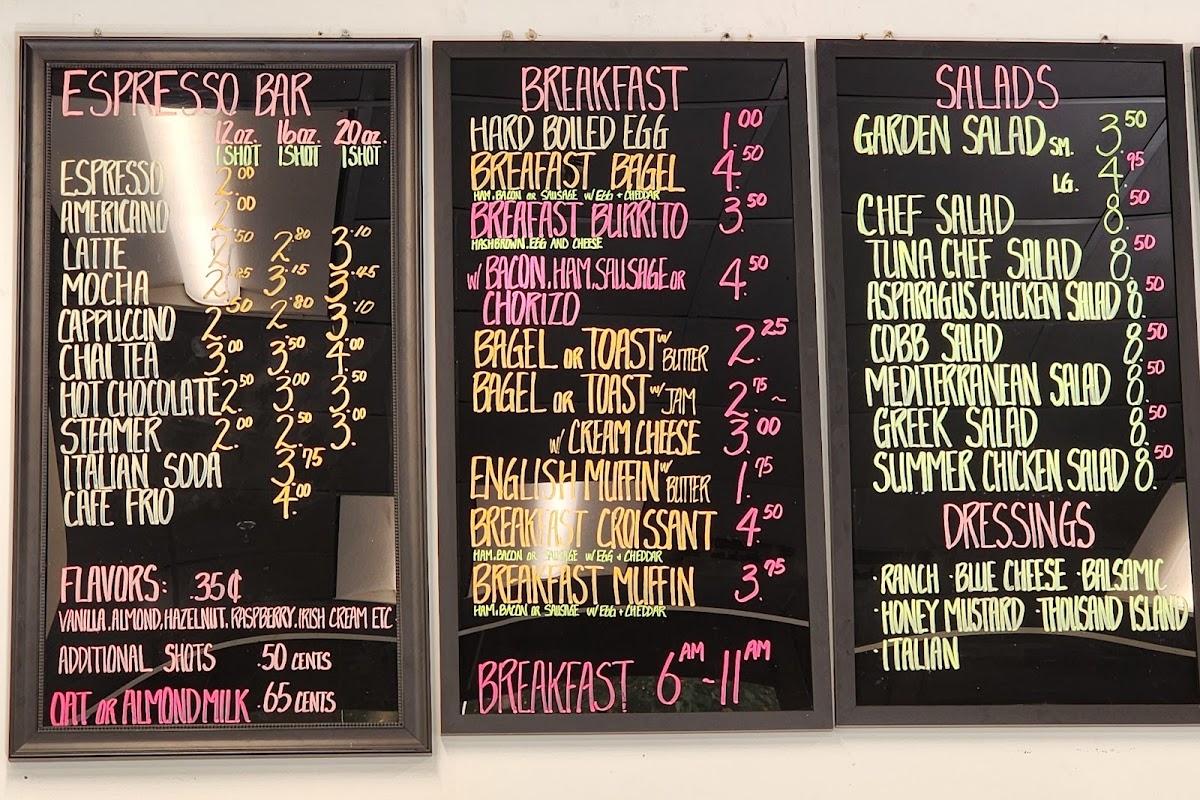 ESPRESSO BAR
12oz. 16oz. 20oz.
1 SHOT 1 SHOT 1 SHOT
ESPRESSO 2.00
AMERICANO 2.00
LATTE 2.50 2.80 3.10
MOCHA 2.85 3.15 3.45
CAPPUCCINO 2.50 2.80 3.10
CHAI TEA 3.00 3.50 4.00
HOT CHOCOLATE 2.50 3.00 3.50
STEAMER 2.00 2.50 3.00
ITALIAN SODA 3.75
CAFE FRIO 4.00
FLAVORS: .35¢
VANILLA, ALMOND, HAZELNUT, RASPBERRY, IRISH CREAM ETC.
ADDITIONAL SHOTS .50 CENTS
OAT OR ALMOND MILK .65 CENTS
BREAKFAST
HARD BOILED EGG 1.00
BREAFAST BAGEL 4.50
HAM, BACON OR SAUSAGE W/ EGG + CHEDDAR
BREAFAST BURRITO 3.50
HASHBROWN, EGG AND CHEESE
W/ BACON, HAM, SAUSAGE OR 4.50
CHORIZO
BAGEL OR TOAST W/ BUTTER 2.25
BAGEL OR TOAST W/ JAM 2.75 ~
W/ CREAM CHEESE 3.00
ENGLISH MUFFIN W/ BUTTER 1.75
BREAKFAST CROISSANT 4.50
HAM, BACON OR SAUSAGE W/ EGG + CHEDDAR
BREAKFAST MUFFIN 3.75
HAM, BACON OR SAUSAGE W/ EGG + CHEDDAR
BREAKFAST 6AM ~ 11AM
SALADS
GARDEN SALAD SM. 3.50
LG. 4.95
CHEF SALAD 8.50
TUNA CHEF SALAD 8.50
ASPARAGUS CHICKEN SALAD 8.50
COBB SALAD 8.50
MEDITERRANEAN SALAD 8.50
GREEK SALAD 8.50
SUMMER CHICKEN SALAD 8.50
DRESSINGS
·RANCH ·BLUE CHEESE ·BALSAMIC
·HONEY MUSTARD ·THOUSAND ISLAND
·ITALIAN